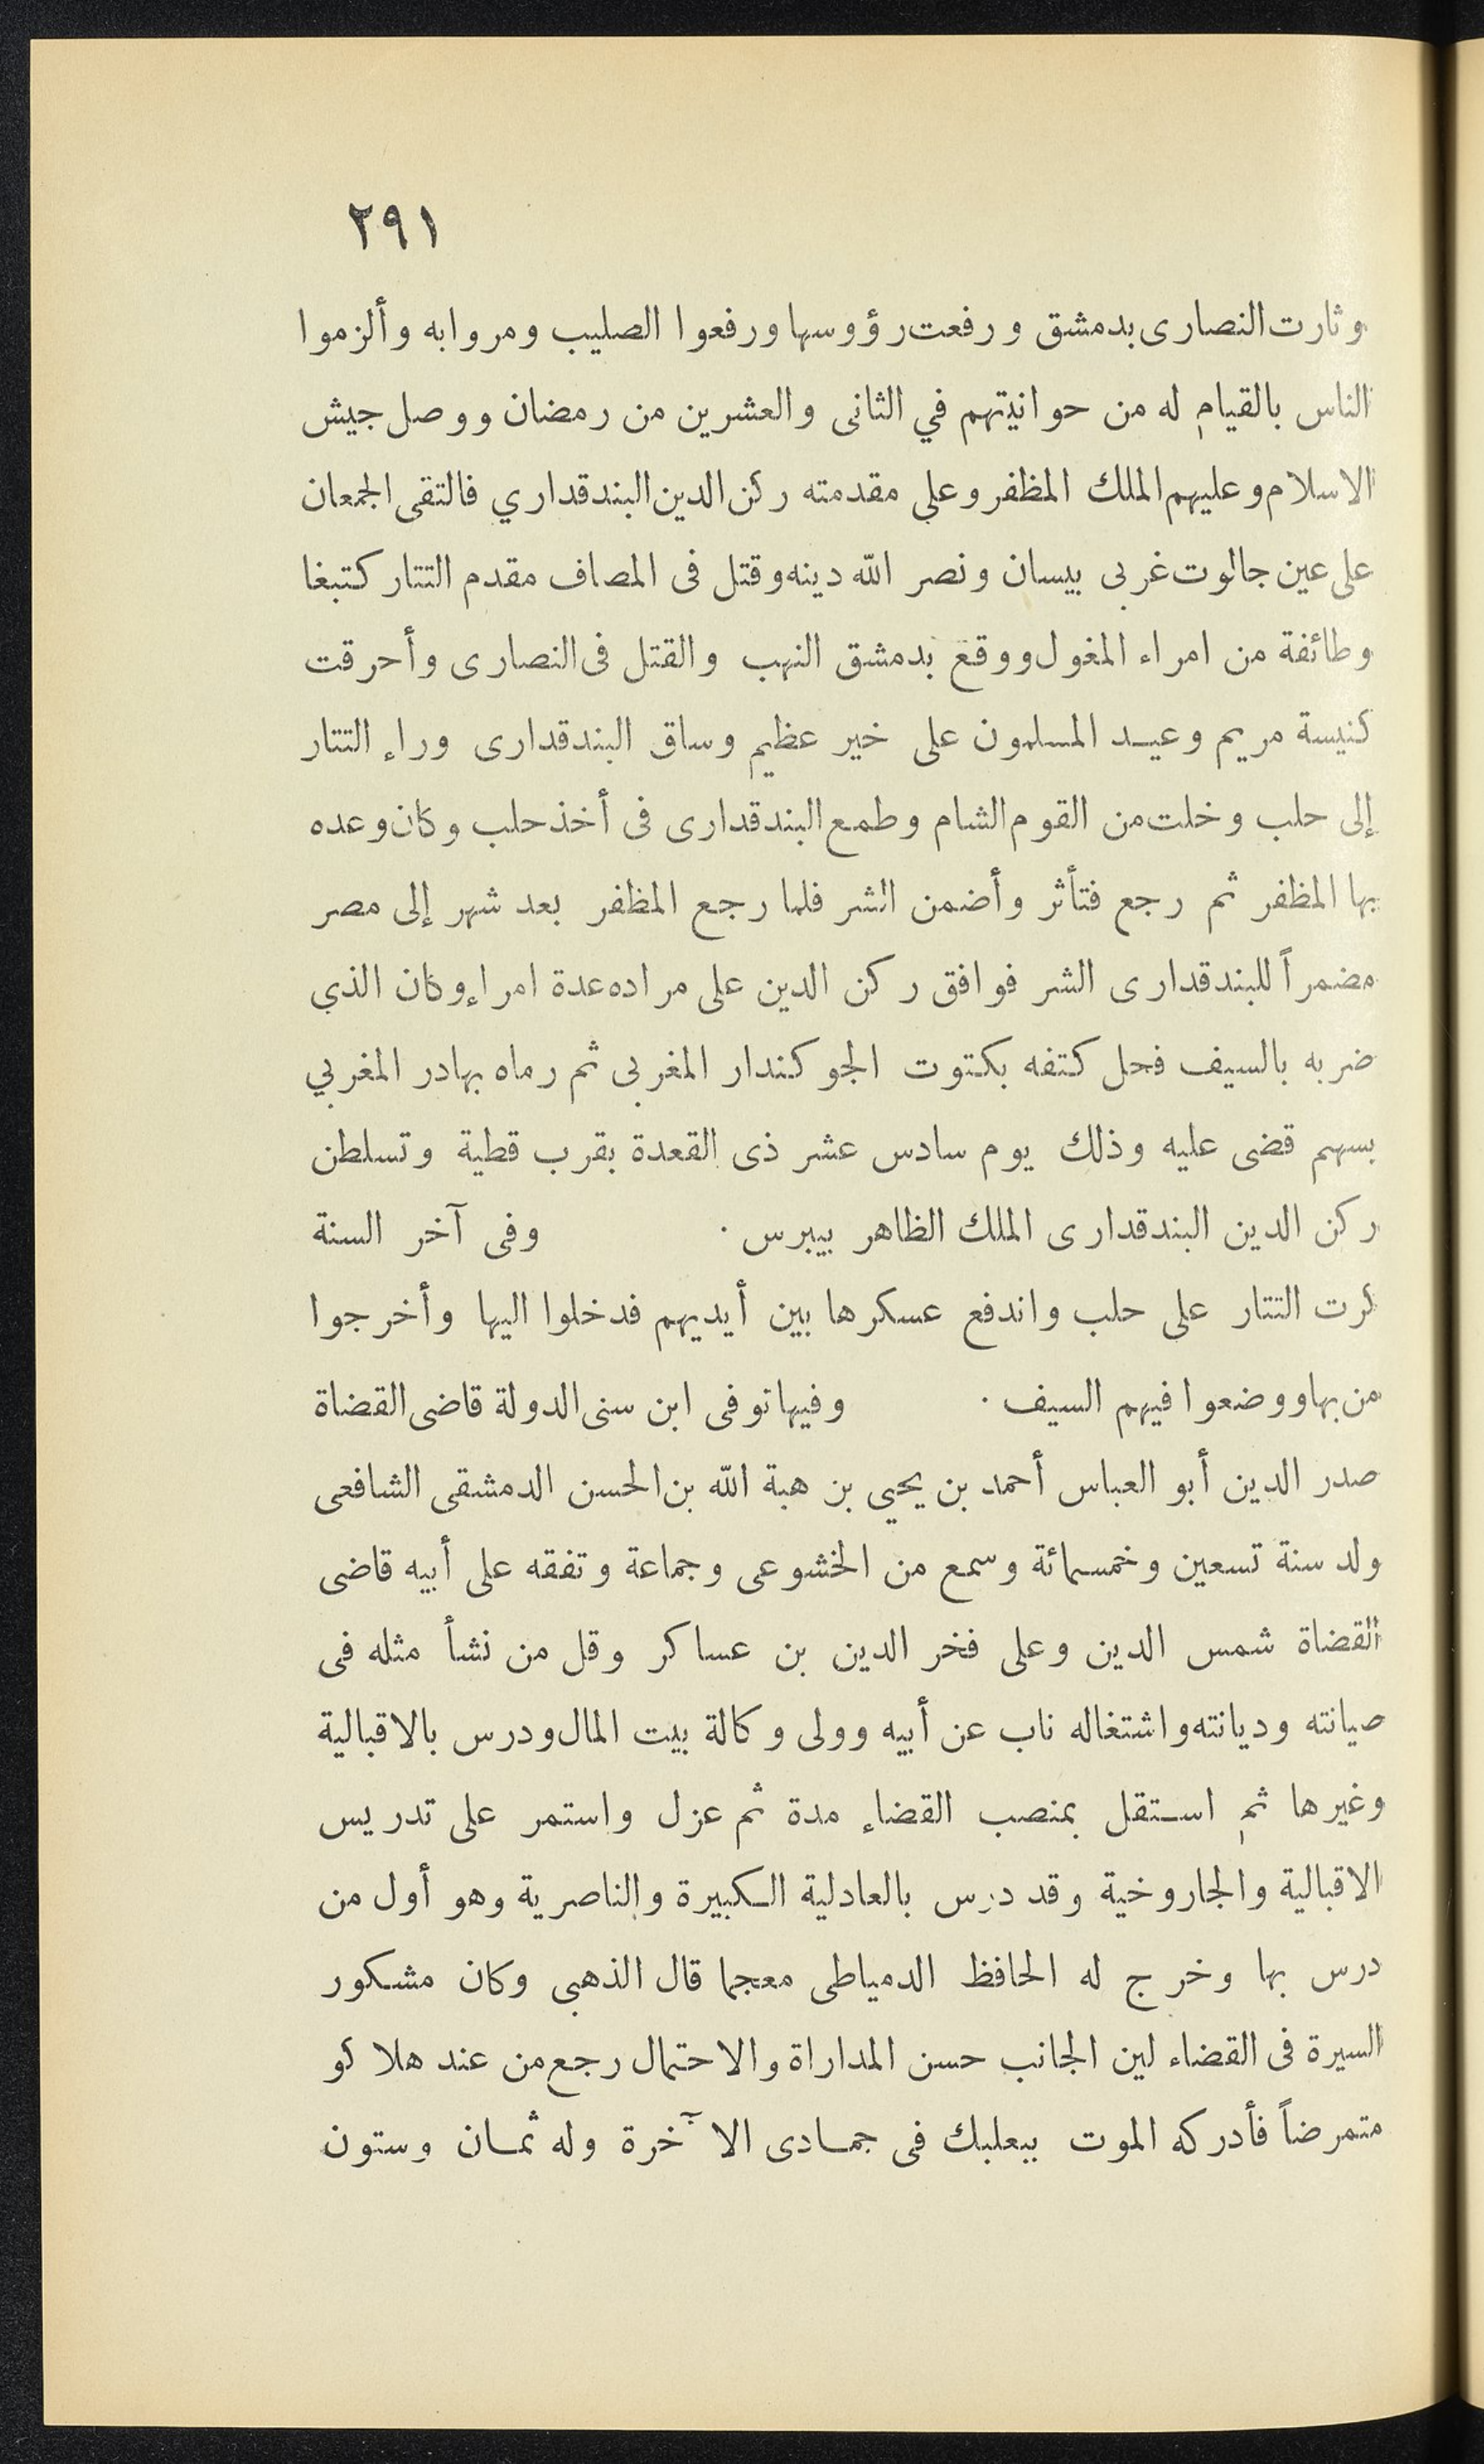 ٢٩١
وثارت النصارى بدمشق ورفعت رؤوسها ورفعوا الصليب ومروا به وألزموا
الناس بالقيام له من حوانيتهم في الثانى والعشرين من رمضان ووصل جيش
الاسلام وعليهم الملك المظفر وعلى مقدمته ركن الدين البندقداري فالتقى الجمعان
على عين جالوت غربى بيسان ونصر الله دينه وقتل فى المصاف مقدم التتار كتبغا
وطائفة من امراء المغول ووقع بدمشق النهب والقتل فى النصارى وأحرقت
كنيسة مريم وعيد المسلمون على خير عظيم وساق البندقدارى وراء التتار
إلى حلب وخلت من القوم الشام وطمع البندقدارى فى أخذ حلب وكان وعده
بها المظفر ثم رجع فتأثر وأضمن الشر فلما رجع المظفر بعد شهر إلى مصر
مضمراً للبندقدارى الشر فوافق ركن الدين على مراده عدة امراء وكان الذي
ضربه بالسيف فحل كتفه بكتوت الجوكندار المغربى ثم رماه بهادر المغربي
بسهم قضى عليه وذلك يوم سادس عشر ذى القعدة بقرب قطية وتسلطن
ركن الدين البندقدارى الملك الظاهر بيبرس . وفى آخر السنة
كرت التتار على حلب واندفع عسكرها بين أيديهم فدخلوا اليها وأخرجوا
من بها ووضعوا فيهم السيف . وفيها توفى ابن سنى الدولة قاضى القضاة
صدر الدين أبو العباس أحمد بن يحيي بن هبة الله بن الحسن الدمشقى الشافعى
ولد سنة تسعين وخمسمائة وسمع من الخشوعى وجماعة وتفقه على أبيه قاضى
القضاة شمس الدين وعلى فخر الدين بن عساكر وقل من نشأ مثله فى
صيانته وديانته واشتغاله ناب عن أبيه وولى وكالة بيت المال ودرس بالاقبالية
وغيرها ثم استقل بمنصب القضاء مدة ثم عزل واستمر على تدريس
الاقبالية والجاروخية وقد درس بالعادلية الكبيرة والناصرية وهو أول من
درس بها وخرج له الحافظ الدمياطى معجما قال الذهبى وكان مشكور
السيرة فى القضاء لين الجانب حسن المداراة والاحتمال رجع من عند هلاكو
متمرضاً فأدركه الموت ببعلبك فى جمادى الآخرة وله ثمان وستون